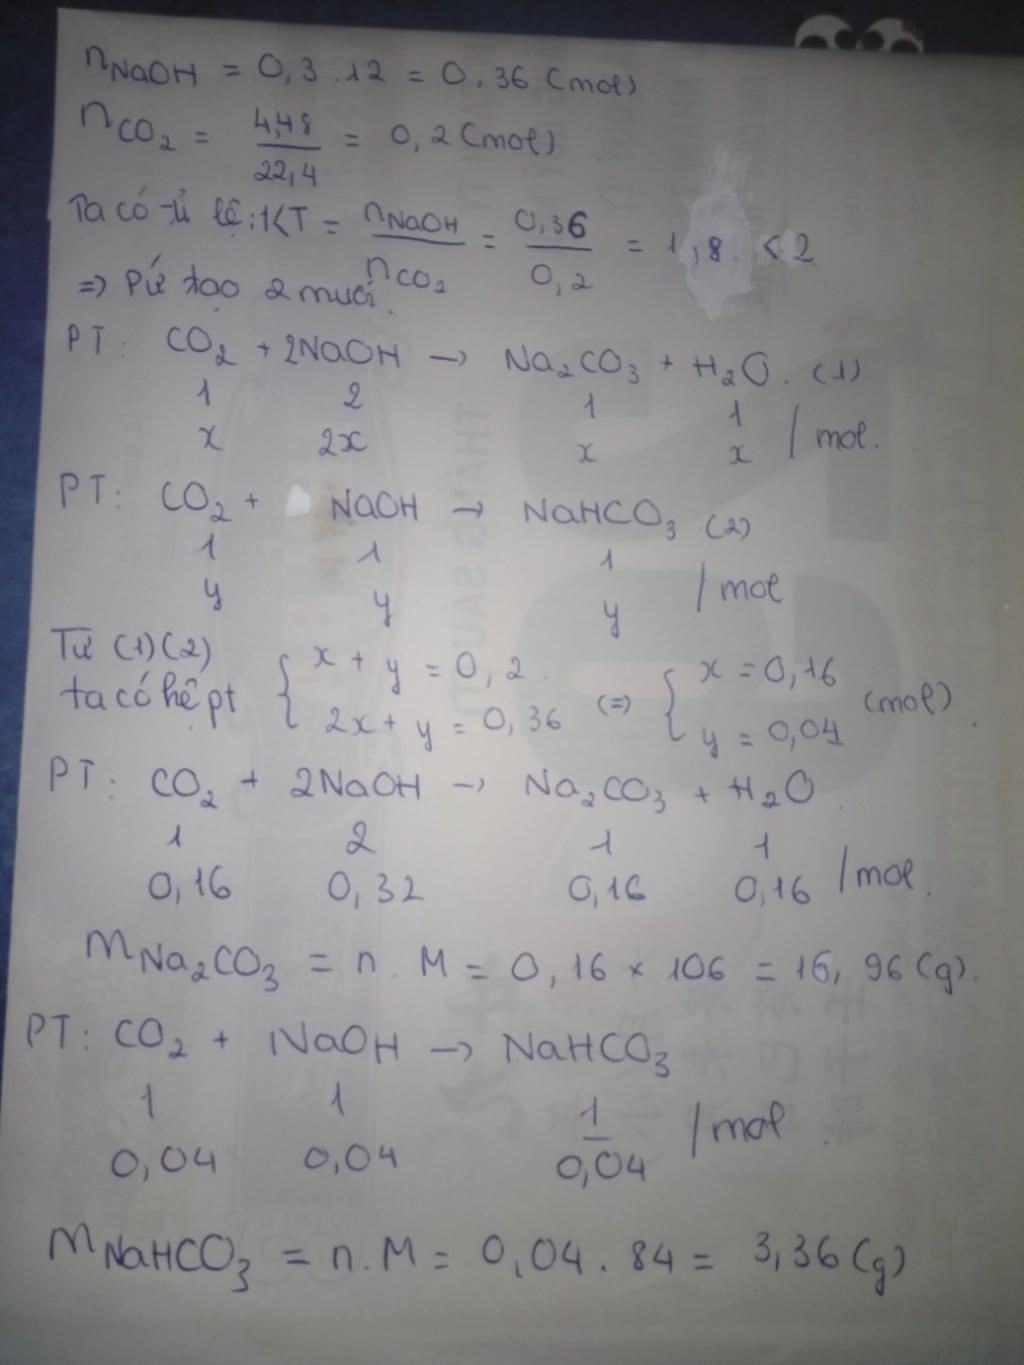 nNaOH = 0,3 . 12 = 0.36 (mol)
nCO₂ = 4,48/22,4 = 0,2 (mol)
Ta có tỉ lệ: KT = nNaOH/nCO₂ = 0,36/0,2 = 1,8 < 2
=> Pứ tạo 2 muối.
PT: CO₂ + 2NaOH → Na₂CO₃ + H₂O. (1)
1 2 1 1
x 2x x x / mol.
PT: CO₂ + NaOH → NaHCO₃ (2)
1 1 1
y y y / mol
Từ (1)(2)
ta có hệ pt { x + y = 0,2 ; 2x + y = 0,36 (=) { x = 0,16 ; y = 0,04 (mol).
PT: CO₂ + 2NaOH → Na₂CO₃ + H₂O
1 2 1 1
0,16 0,32 0,16 0,16 / mol.
mNa₂CO₃ = n . M = 0,16 × 106 = 16,96 (g).
PT: CO₂ + NaOH → NaHCO₃
1 1 1
0,04 0,04 0,04 / mol
mNaHCO₃ = n.M = 0,04 . 84 = 3,36 (g)